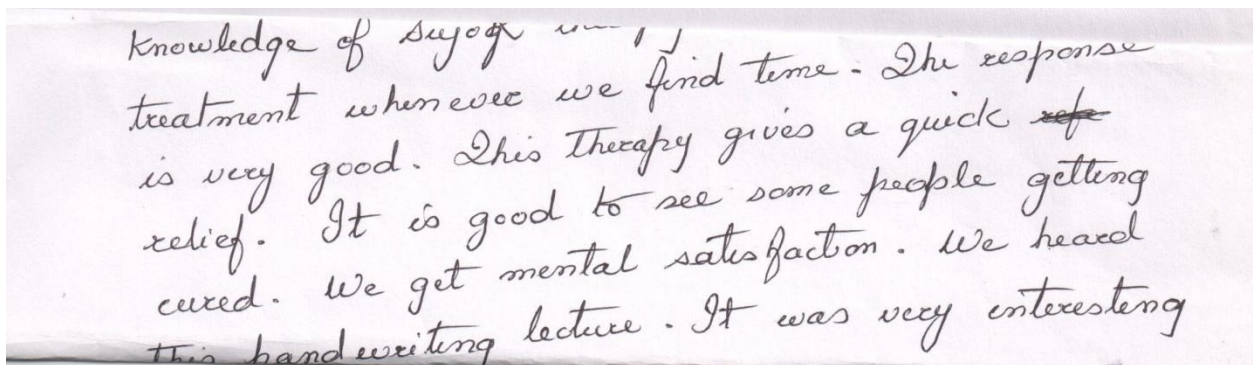 Knowledge of Sujok
treatment whenever we find time. The response
is very good. This Therapy gives a quick
relief. It is good to see some people getting
cured. We get mental satisfaction. We heard
this handwriting lecture. It was very interesting